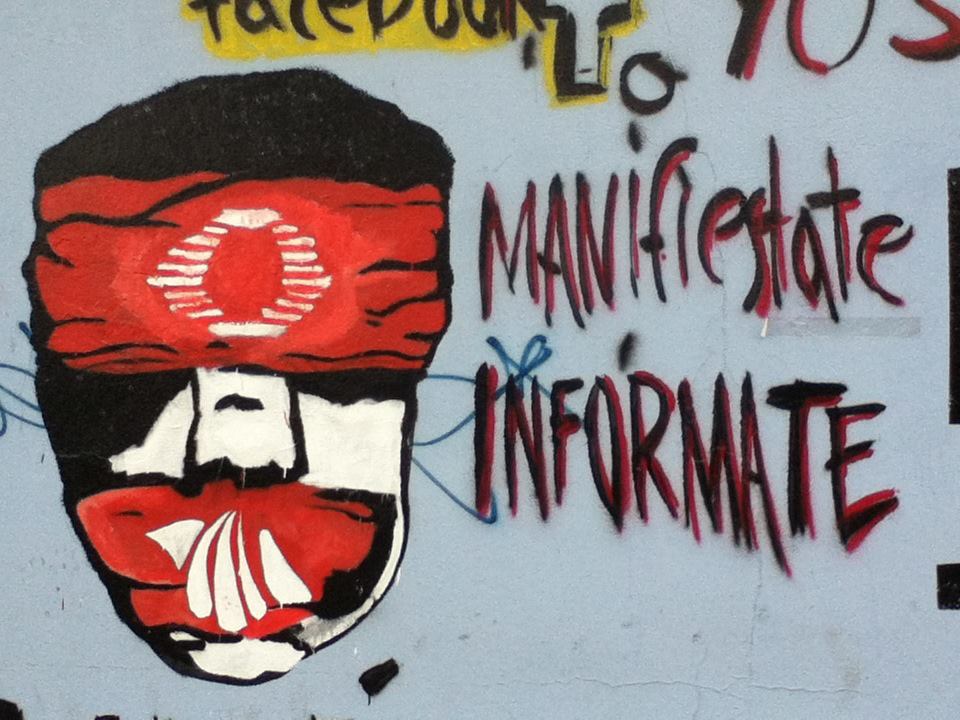 facebook YOS
MANifiestate
INFORMATE